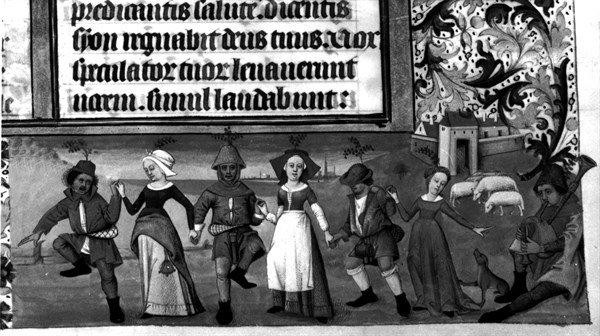 predicantis salute. dicentis
syon regnabit deus tuus. Vox
speculator tuor leuauerunt
uocem. simul laudabunt: